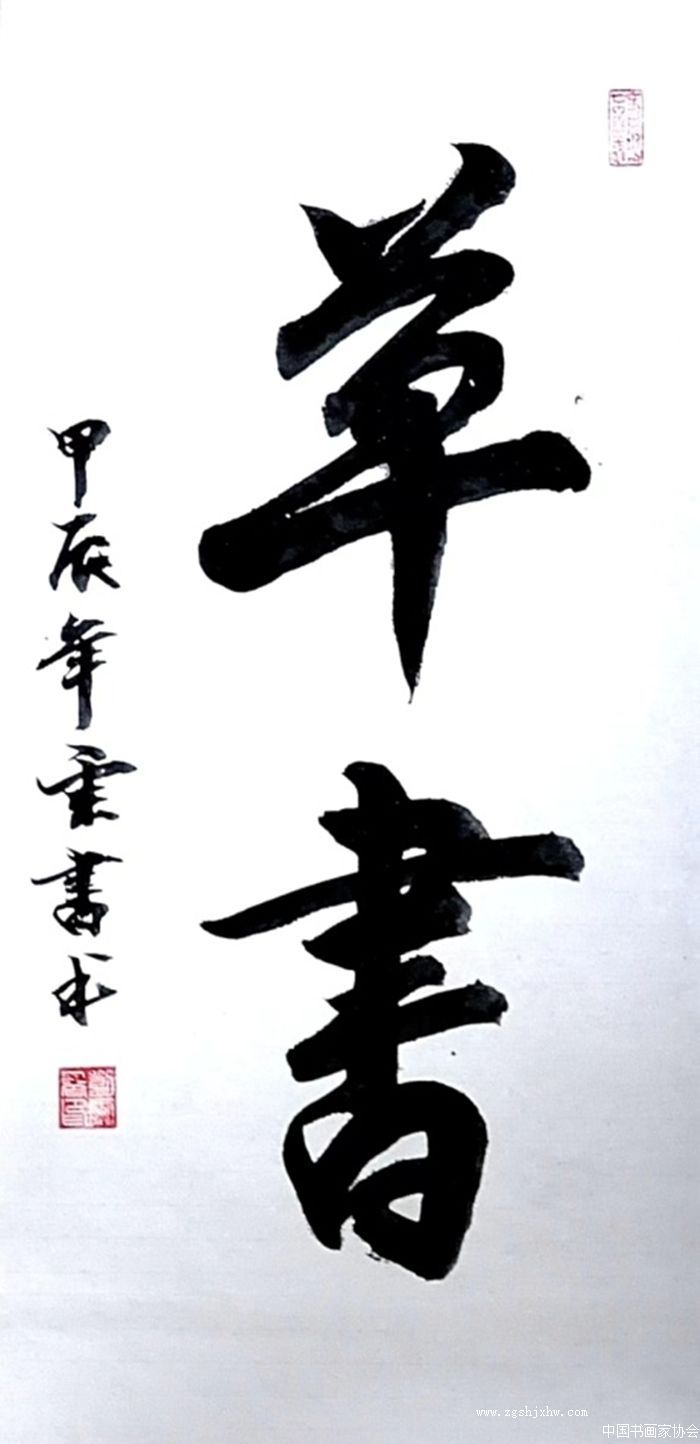 草書
甲辰年雲書於
www.zgshjxhw.com
中国书画家协会